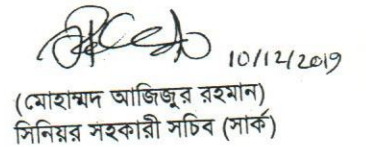 10/12/2019
(মোহাম্মদ আজিজুর রহমান)
সিনিয়র সহকারী সচিব (সার্ক)